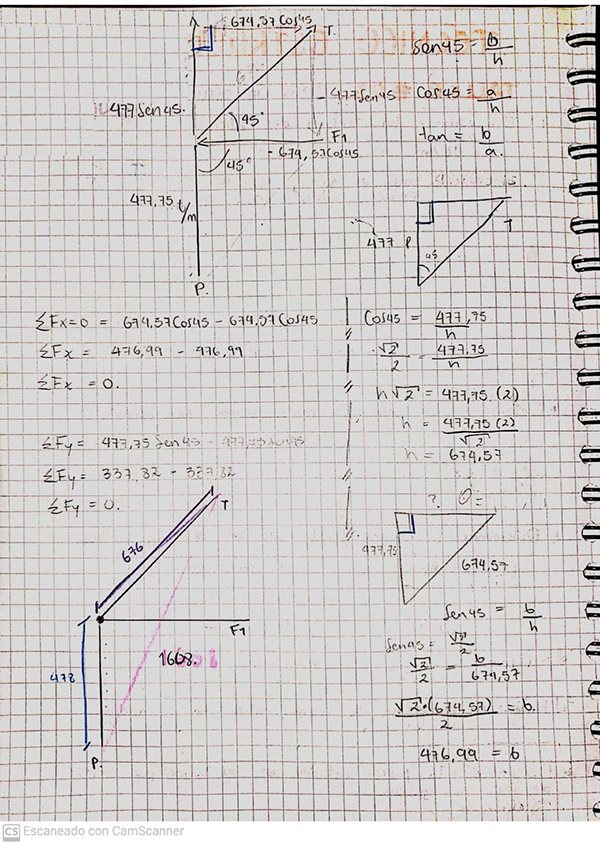 674,57 Cos45
T.
Sen45 = b/h
477Sen45.
- 477Sen45
Cos45 = a/h
45°
F1
- 674,57Cos45
45°
tan = b/a.
477,75 t/m
P.
477 P
45
T
ΣFx=0 = 674,57Cos45 - 674,57Cos45
ΣFx = 476,99 - 476,99
ΣFx = 0.
Cos45 = 477,75/h
√2/2 = 477,75/h
h√2 = 477,75 (2)
h = 477,75 (2)/√2
h = 674,57
ΣFy = 477,75 Sen45 - 477,75 Sen45
ΣFy = 337,82 - 337,82
ΣFy = 0.
T
676
? Θ=
477,75
674,57
F1
1668.
478
P.
Sen45 = b/h
Sen45 = √2/2
√2/2 = b/674,57
√2·(674,57)/2 = b.
476,99 = b
CS Escaneado con CamScanner